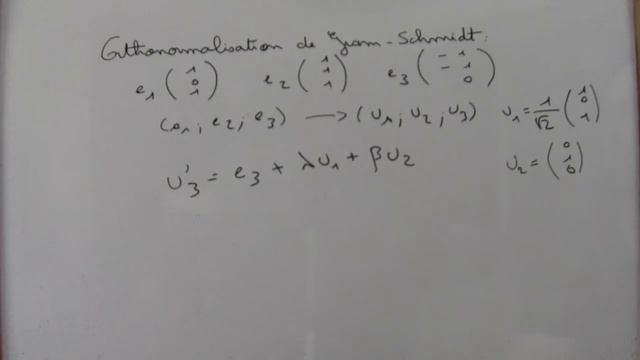 Orthonormalisation de Gram-Schmidt:
e₁ (1 0 1) e₂ (1 1 1) e₃ (-1 -1 0)
(e₁; e₂; e₃) → (U₁; U₂; U₃) U₁ = 1/√2 (1 0 1)
U'₃ = e₃ + λU₁ + βU₂ U₂ = (0 1 0)